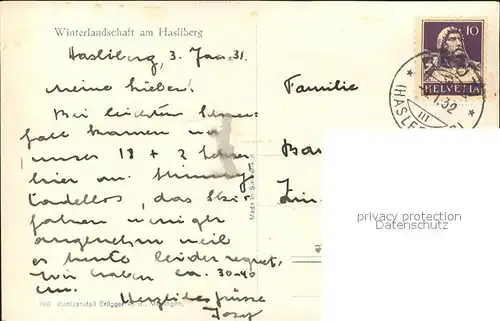 Winterlandschaft am Hasliberg
Hasliberg, 3. Jan. 31.
Meine Lieben!
Bei leichtem Schnee-
fall kamen wir
unser 18 + 2 Lehrer
hier an. Stimmung
tadellos, das Ski-
fahren weniger
angenehm weil
es heute leider regnet,
wir haben ca. 30-40
cm.
Herzliche Grüsse
Josef
Familie
10
HELVETIA
1.32
III
(HASLE
privacy protection
Datenschutz
Made in Switzerland
700 Kunstanstalt Brügger A. G., Meiringen.